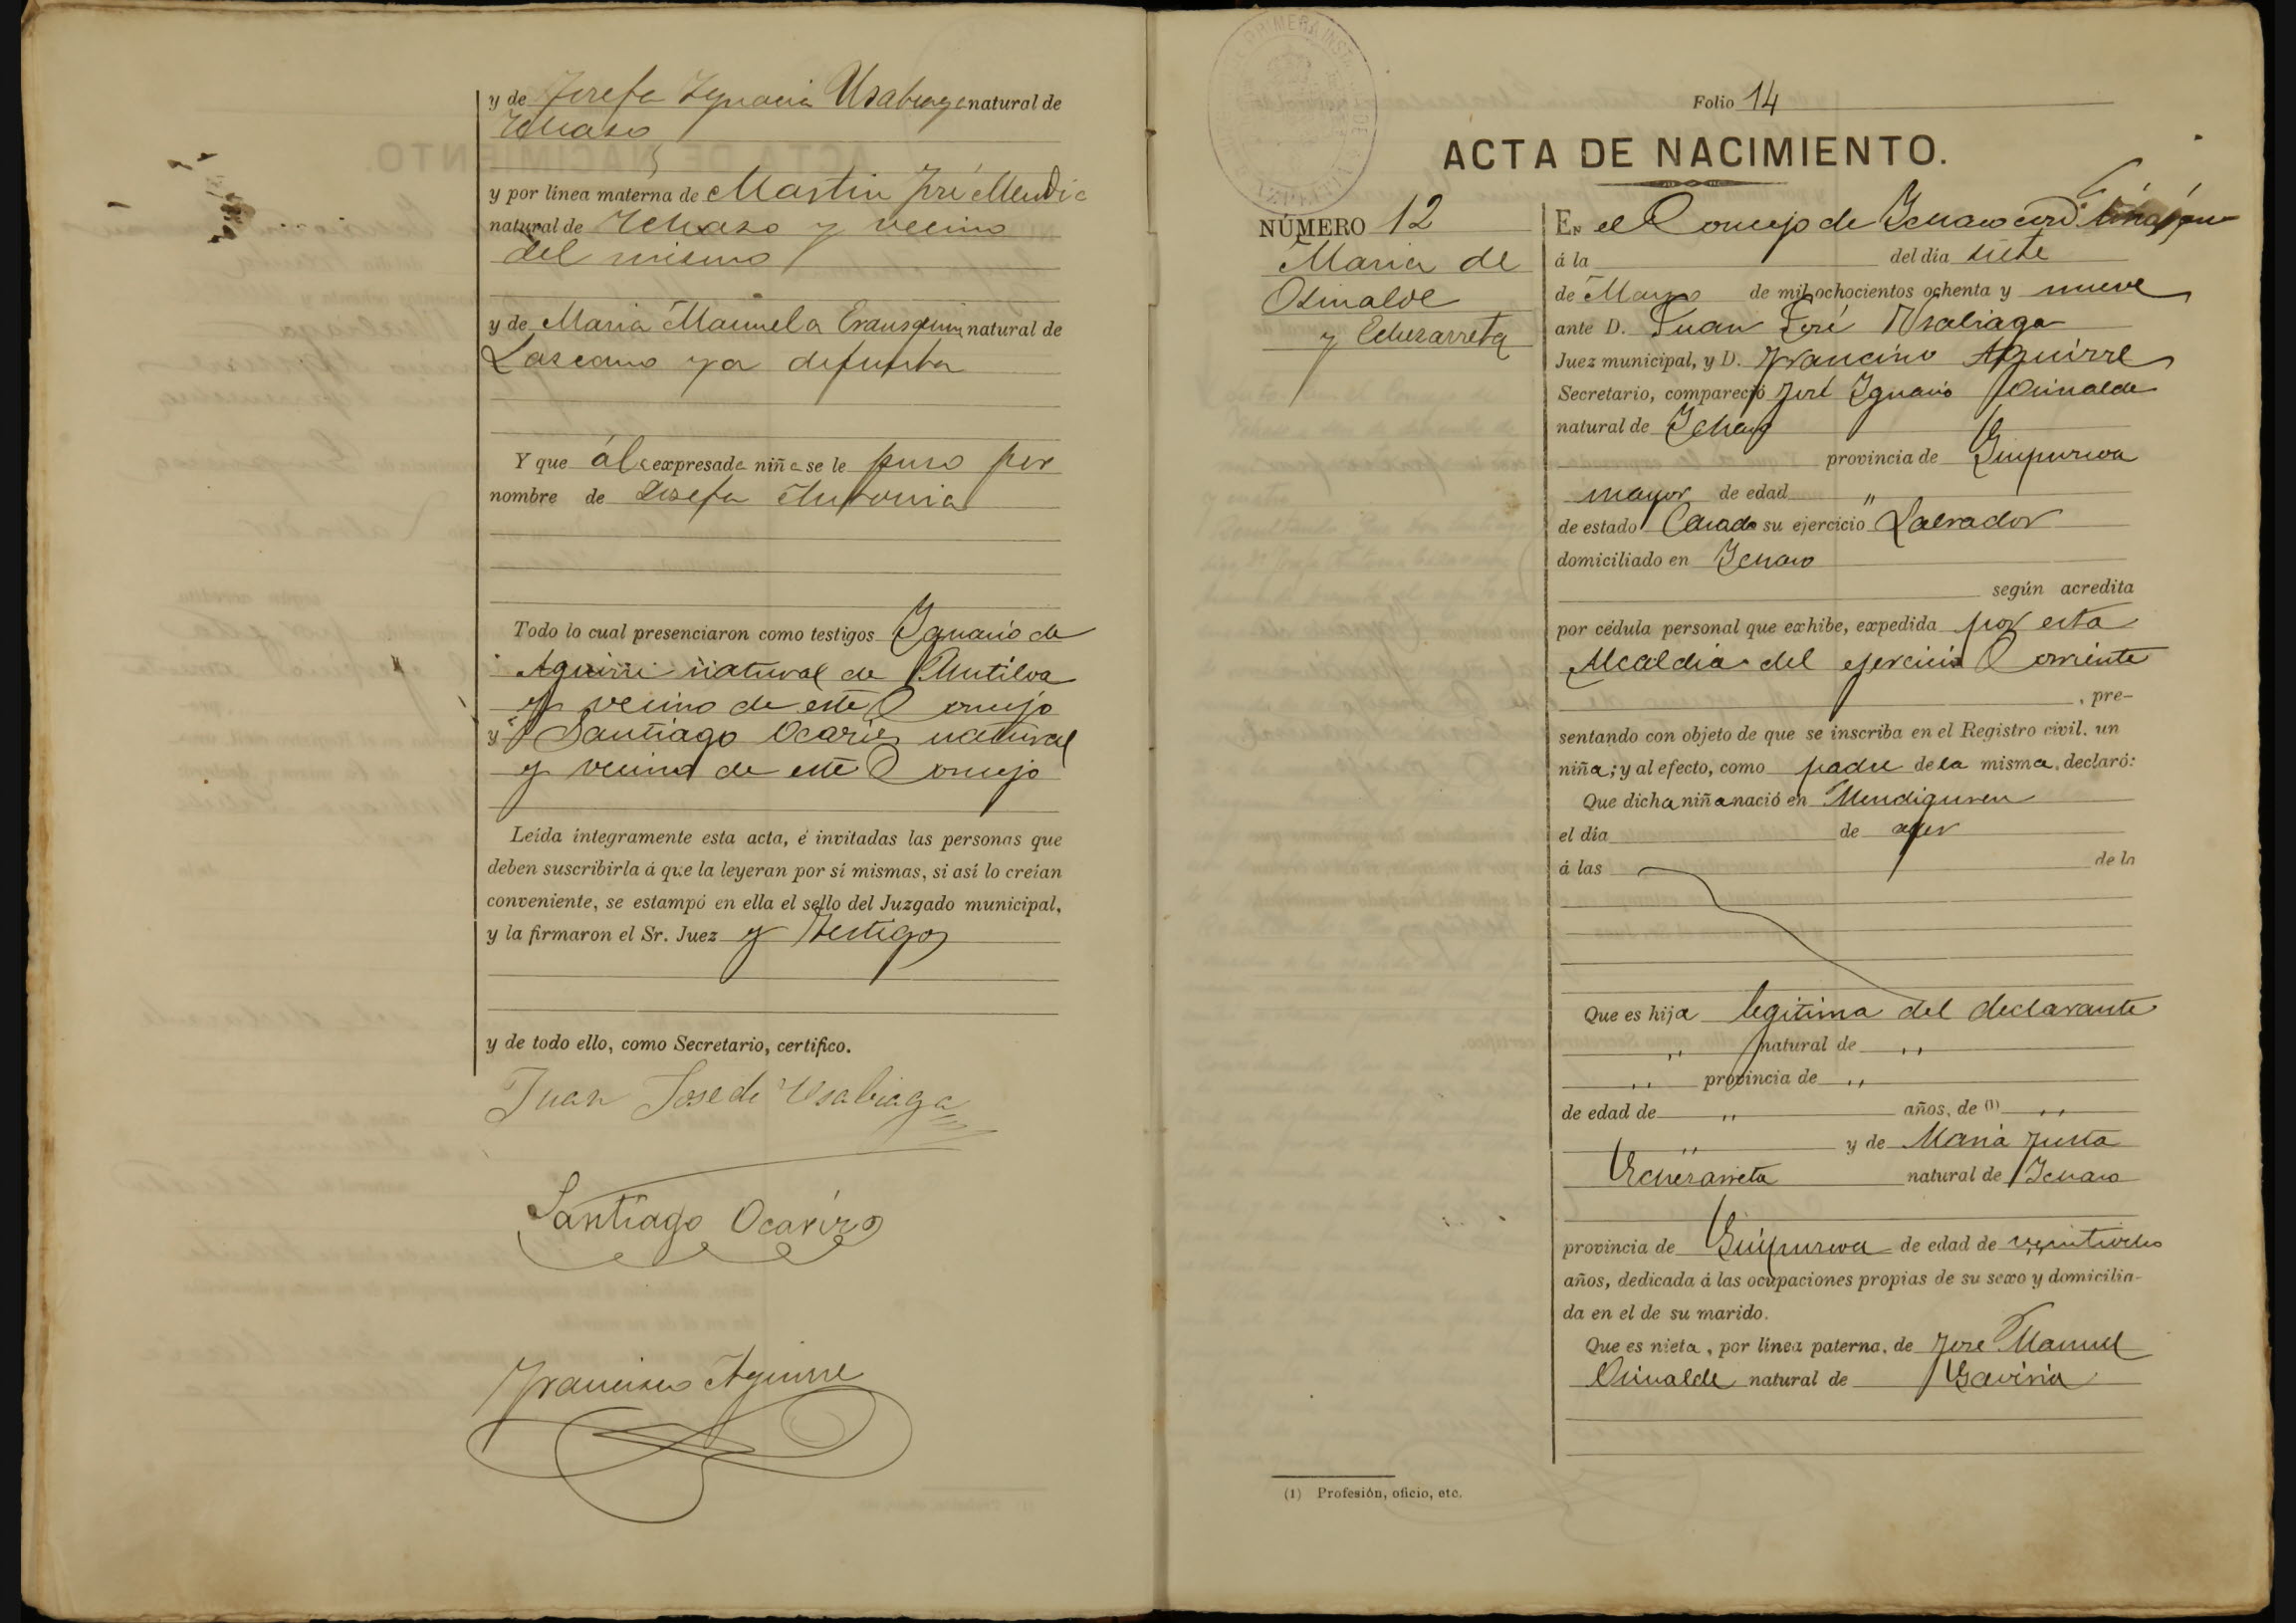 y de Josefa Ygnacia Usabiaga natural de
Ychaso
y por línea materna de Martin José Mendia
natural de Ychaso y vecino
del mismo
y de Maria Manuela Erausquin natural de
Lascano ya difunta
Y que á la expresada niña se le puso por
nombre de Josefa Antonia
Todo lo cual presenciaron como testigos Ygnacio de
Aguirre natural de Mutiloa
y vecino de este Concejo
y Santiago Ocariz natural
y vecino de este Concejo
Leída íntegramente esta acta, é invitadas las personas que
deben suscribirla á que la leyeran por sí mismas, si así lo creían
conveniente, se estampó en ella el sello del Juzgado municipal,
y la firmaron el Sr. Juez y testigos
y de todo ello, como Secretario, certifico.
Juan Jose de Usabiaga
Santiago Ocariz
Francisco Aguirre
Folio 14
ACTA DE NACIMIENTO.
NÚMERO 12
Maria de
Osinalde
y Echezarreta
EN el Concejo de Ychaso
á la del día siete
de Marzo de mil ochocientos ochenta y nueve
ante D. Juan José Usabiaga
Juez municipal, y D. Francisco Aguirre
Secretario, compareció José Ygnacio Osinalde
natural de Ychaso
provincia de Guipuzcoa
mayor de edad "
de estado Casado su ejercicio Labrador
domiciliado en Ychaso
según acredita
por cédula personal que exhibe, expedida por esta
Alcaldia del ejercicio Corriente
, pre-
sentando con objeto de que se inscriba en el Registro civil. un
niña; y al efecto, como padre de la misma, declaró:
Que dicha niña nació en Mendiguren
el día de ayer
á las de la
Que es hija legitima del declarante
" natural de "
" provincia de "
de edad de " años, de (1) "
" y de Maria Justa
Echezarreta natural de Ychaso
provincia de Guipuzcoa de edad de veintiocho
años, dedicada á las ocupaciones propias de su sexo y domicilia-
da en el de su marido.
Que es nieta, por línea paterna, de José Manuel
Osinalde natural de Gaviria
(1) Profesión, oficio, etc.